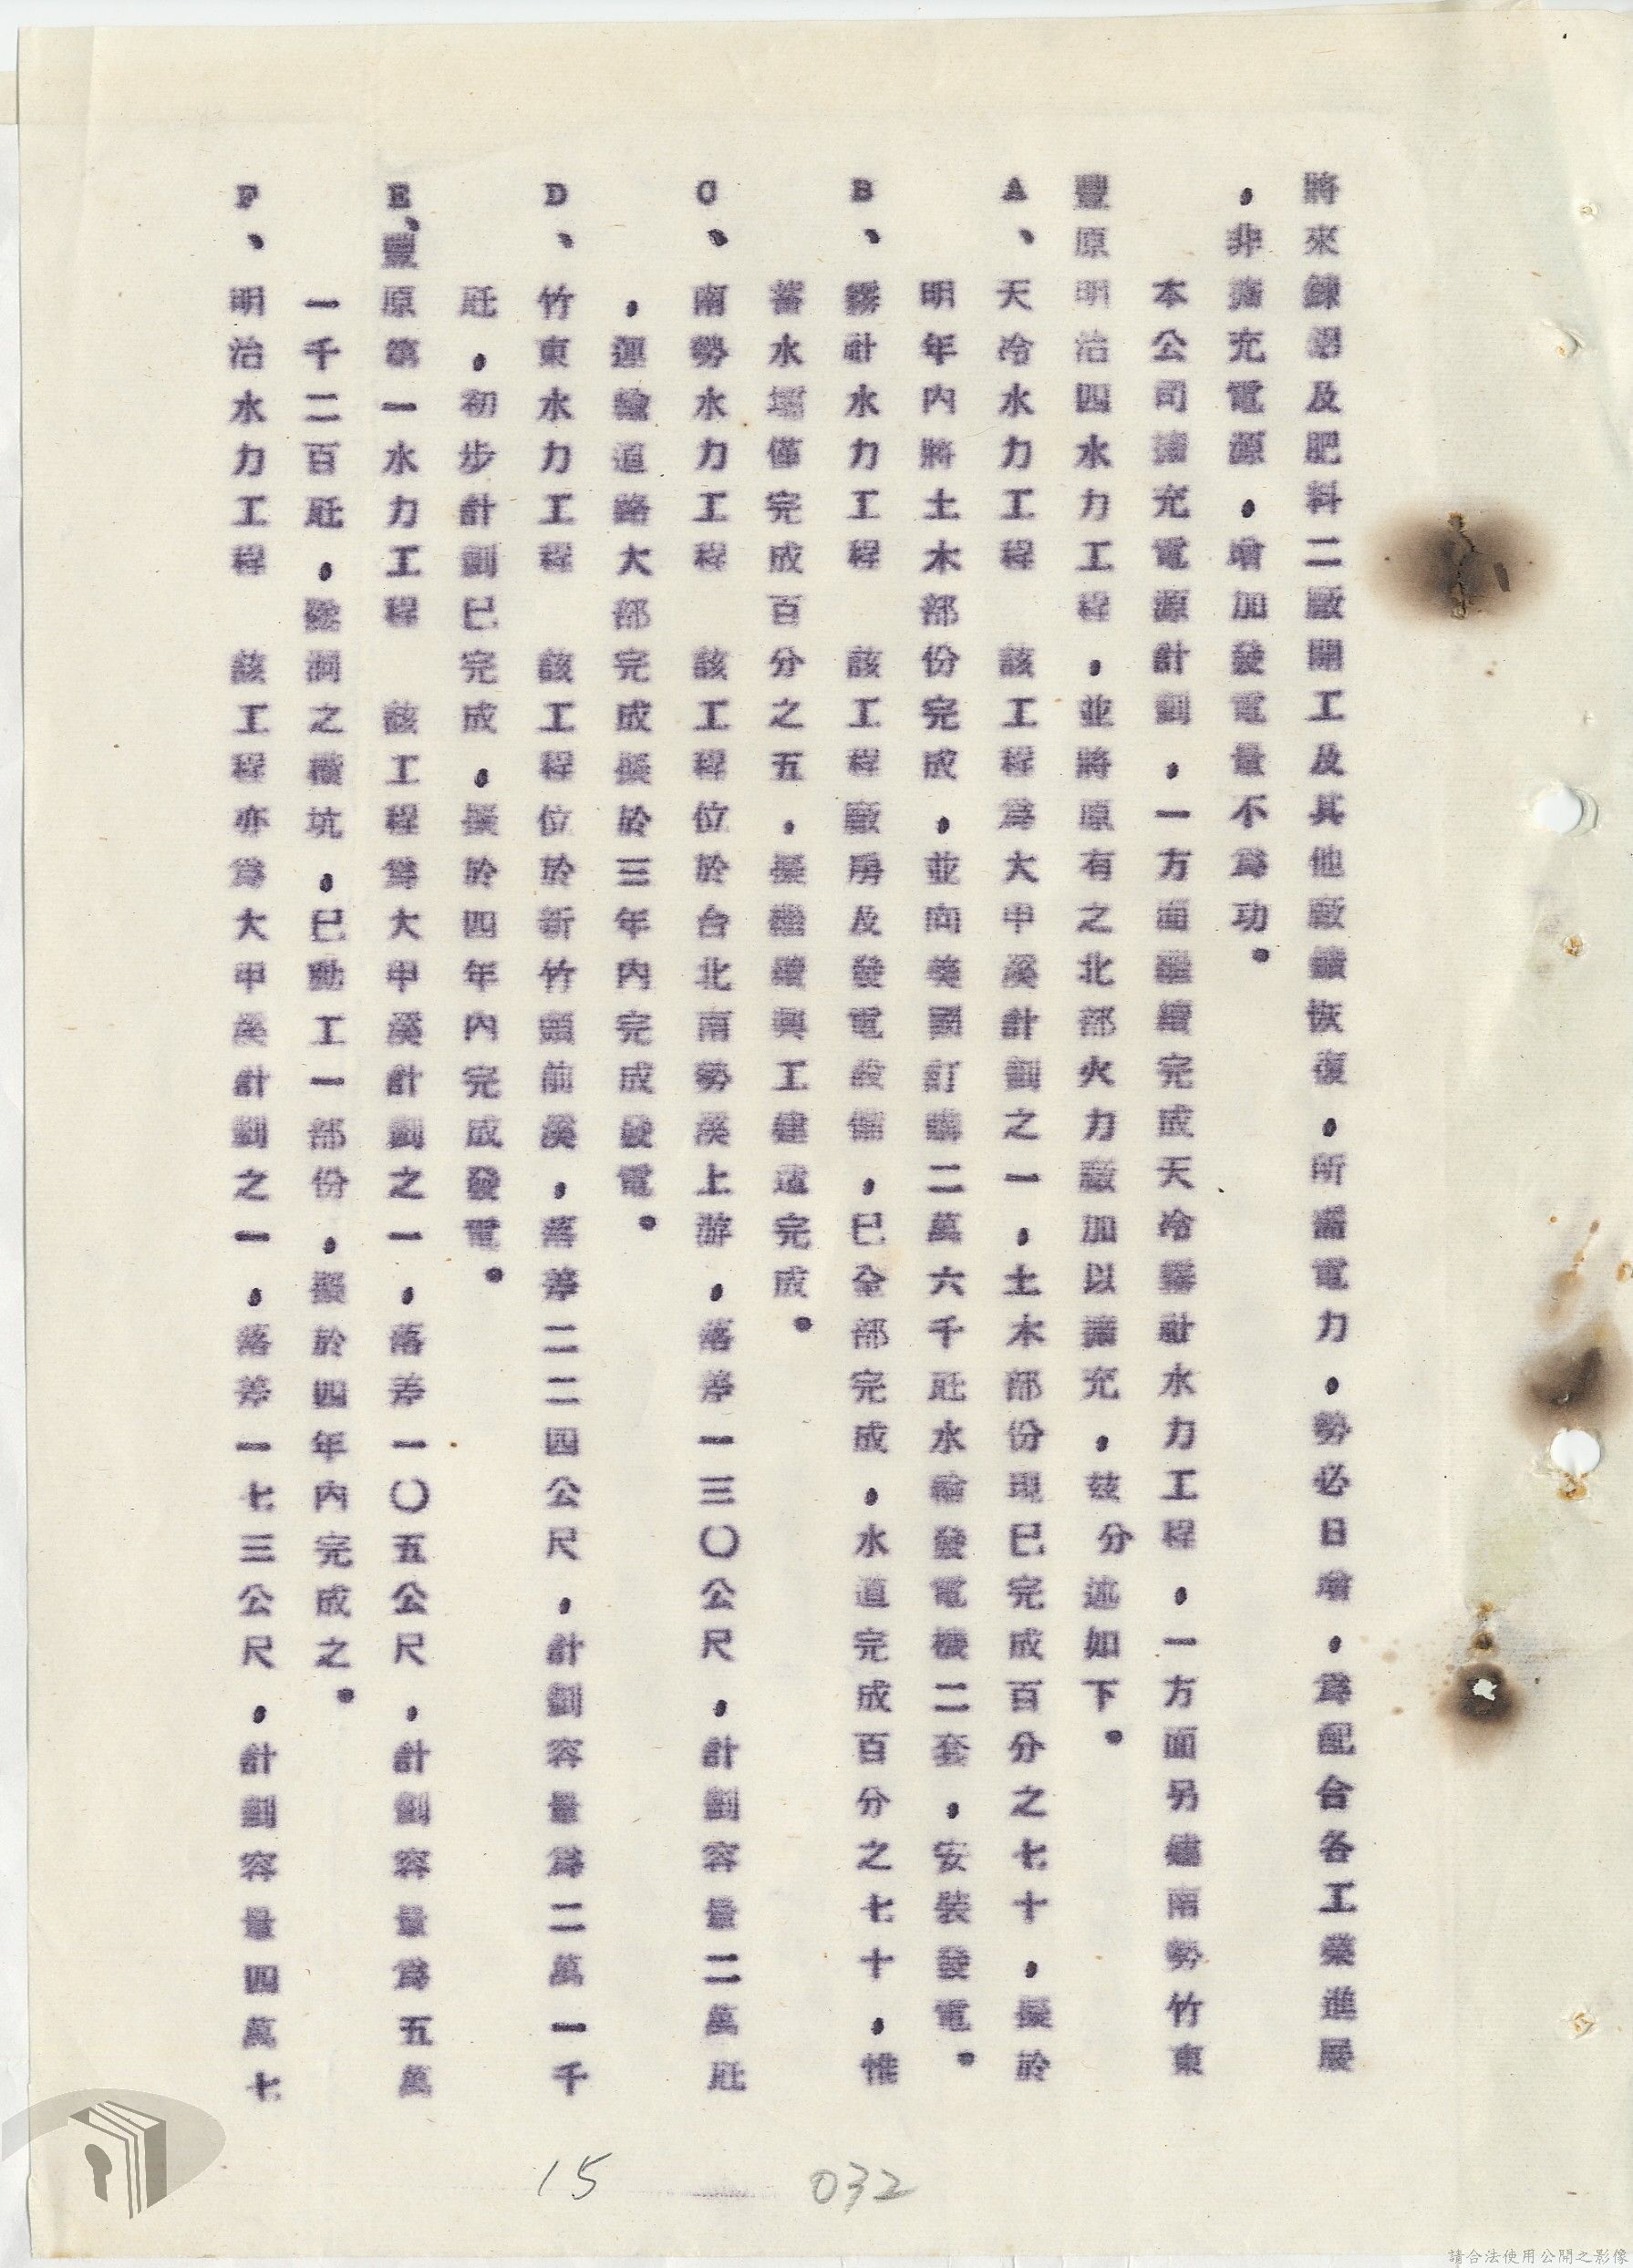 將來鍊鋁及肥料二廠開工及其他廠鑛恢復，所需電力，勢必日增，爲配合各工業進展
，非擴充電源，增加發電量不爲功。
本公司擴充電源計劃，一方面繼續完成天冷霧社水力工程，一方面另繼南勢竹東
豐原明治四水力工程，並將原有之北部火力廠加以擴充，茲分述如下。
A、天冷水力工程　該工程爲大甲溪計劃之一，土木部份現已完成百分之七十，擬於
明年內將土木部份完成，並向美國訂購二萬六千瓩水輪發電機二套，安裝發電。
B、霧社水力工程　該工程廠房及發電設備，已全部完成，水道完成百分之七十，惟
蓄水壩僅完成百分之五，擬繼續興工建造完成。
C、南勢水力工程　該工程位於台北南勢溪上游，落差一三〇公尺，計劃容量二萬瓩
，運輸道路大部完成擬於三年內完成發電。
D、竹東水力工程　該工程位於新竹頭前溪，落差二二四公尺，計劃容量爲二萬一千
瓩，初步計劃已完成，擬於四年內完成發電。
E、豐原第一水力工程　該工程爲大甲溪計劃之一，落差一〇五公尺，計劃容量爲五萬
一千二百瓩，隧洞之橫坑，已動工一部份，擬於四年內完成之。
F、明治水力工程　該工程亦爲大甲溪計劃之一，落差一七三公尺，計劃容量四萬七
15
032
請合法使用公開之影像